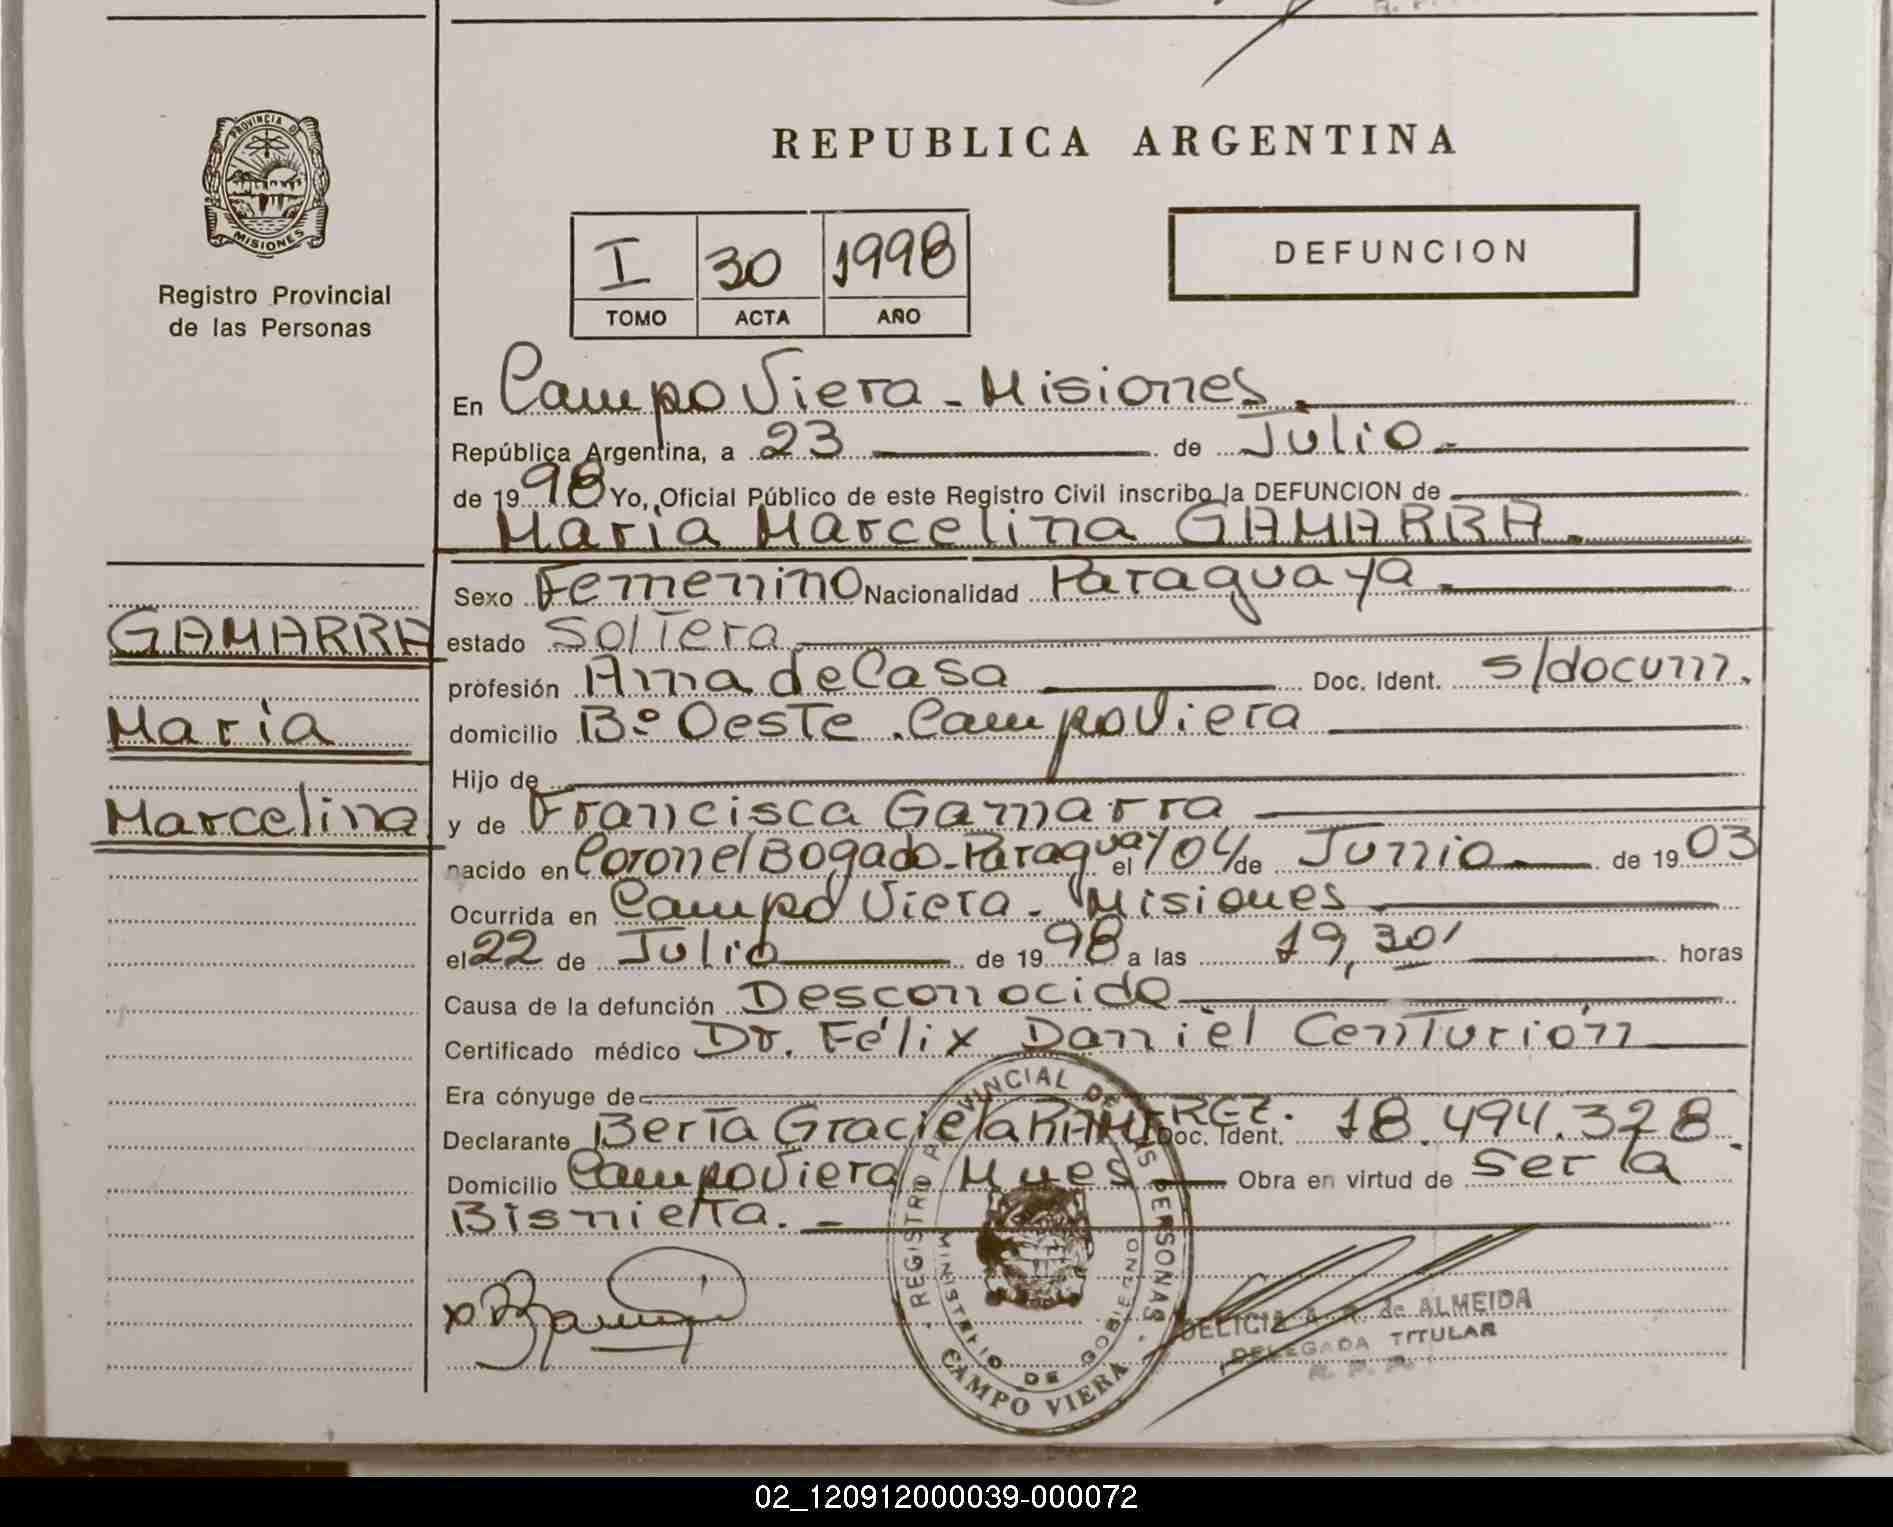 PROVINCIA D
MISIONES
Registro Provincial
de las Personas
GAMARRA
Maria
Marcelina
REPUBLICA ARGENTINA
I 30 1998
TOMO ACTA AÑO
DEFUNCION
En Campo Viera - Misiones.
República Argentina, a 23 de Julio.
de 1998 Yo, Oficial Público de este Registro Civil inscribo la DEFUNCION de
Maria Marcelina GAMARRA.
Sexo Femenino Nacionalidad Paraguaya.
estado Soltera
profesión Ama de Casa Doc. Ident. s/docum.
domicilio B.º Oeste. Campo Viera
Hijo de
y de Francisca Gamarra
nacido en Coronel Bogado - Paraguay el 04 de Junio. de 1903
Ocurrida en Campo Viera - Misiones
el 22 de Julio de 1998 a las 19,30' horas
Causa de la defunción Desconocido
Certificado médico Dr. Félix Daniel Centurión
Era cónyuge de
Declarante Berta Graciela RAMIREZ. Doc. Ident. 18.494.328.
Domicilio Campo Viera Mnes Obra en virtud de ser la
Bisnietta. -
REGISTRO PROVINCIAL DE LAS PERSONAS
MINISTERIO DE GOBIERNO
CAMPO VIERA
DELICIA A. R. de ALMEIDA
DELEGADA TITULAR
R. P. P.
02_120912000039-000072